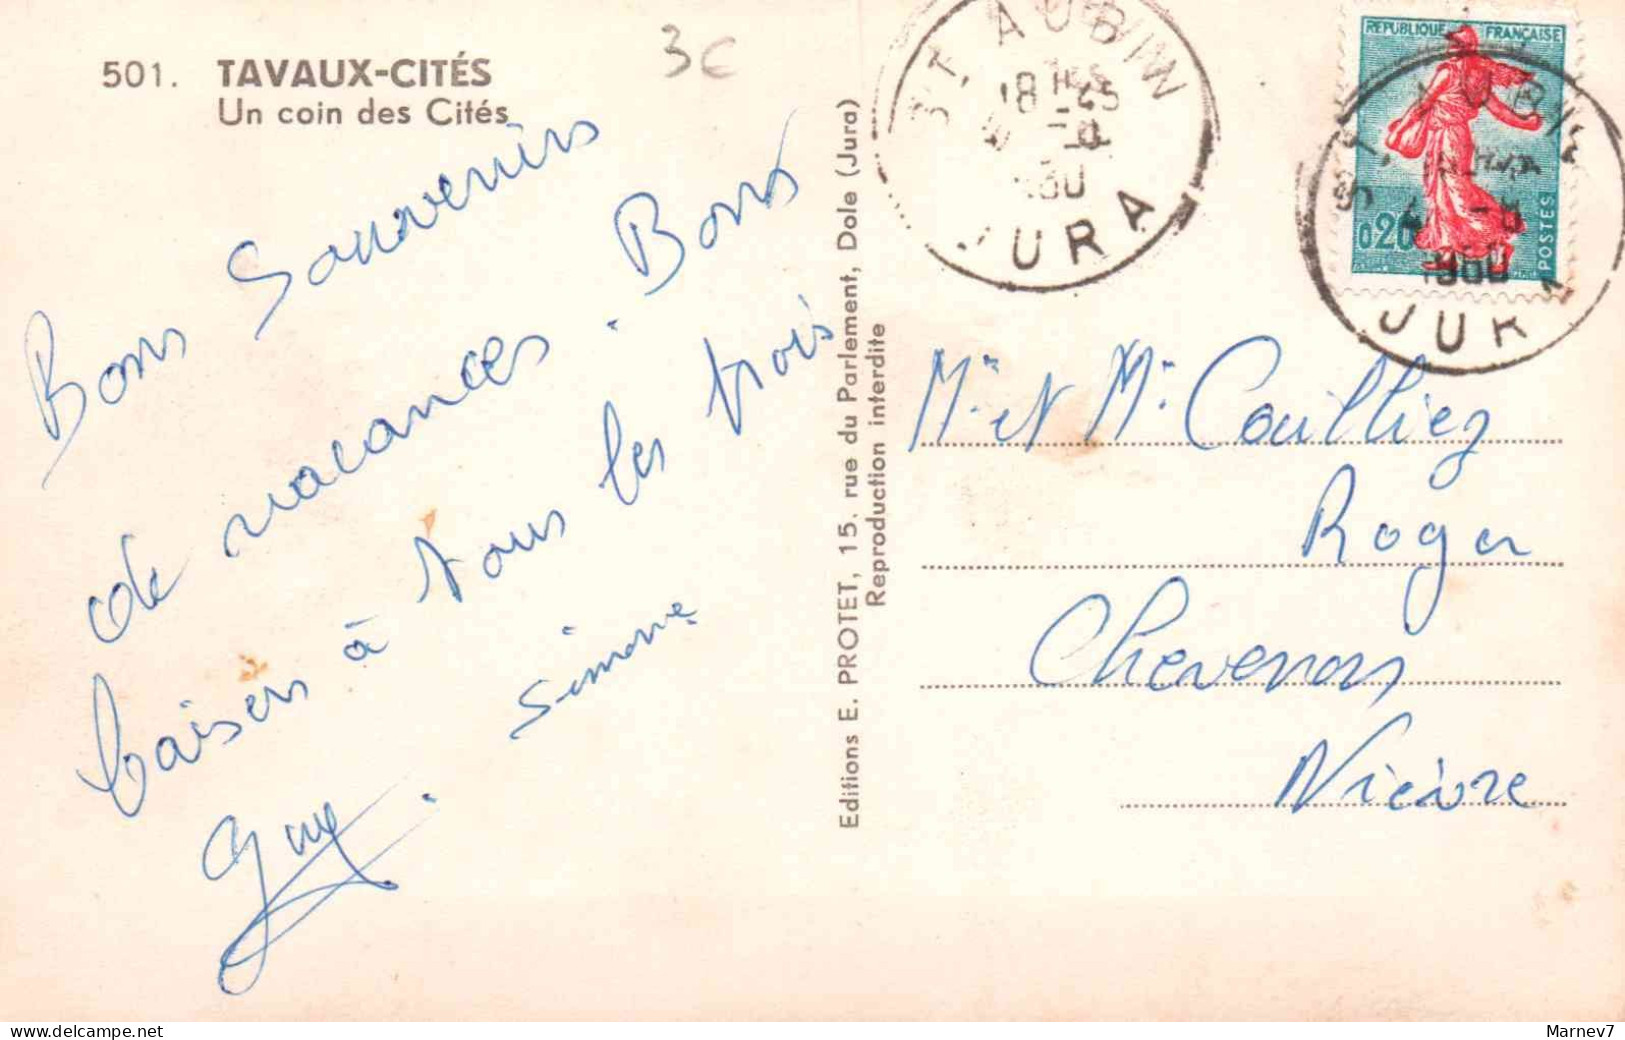 501. TAVAUX-CITÉS
Un coin des Cités
3€
Bons Souvenirs
de vacances. Bons
baisers à vous les trois
Simone
Guy
Editions E. PROTET, 15, rue du Parlement, Dole (Jura)
Reproduction interdite
ST. AUBIN
18H45
JURA
REPUBLIQUE FRANÇAISE
0,20
POSTES
ST. AUBIN
1960
JURA
Mr et Me Couilliez
Roger
Chevenon
Nièvre
www.delcampe.net
Marnev7